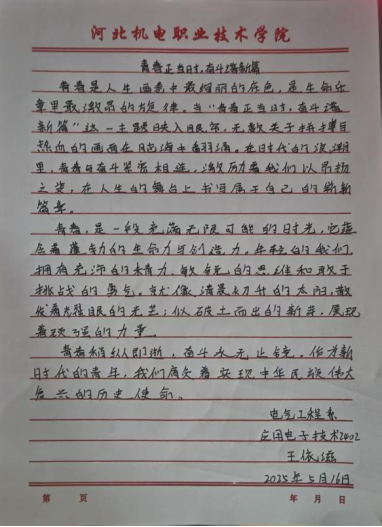 河北机电职业技术学院
青春正当时,奋斗谱新篇
青春是人生画卷中最绚丽的底色,是生命乐
章里最激昂的旋律。当“青春正当时,奋斗谱
新篇”这一主题映入眼帘,无数关于拼搏与
热血的画面在脑海中翻涌。在时代的浪潮
里,青春与奋斗紧密相连,激励着我们以昂扬
之姿,在人生的舞台上书写属于自己的崭新
篇章。
青春,是一段充满无限可能的时光,它蕴
含着蓬勃的生命力与创造力。年轻的我们,
拥有充沛的精力、敏锐的思维和敢于
挑战的勇气。就像清晨初升的太阳,散
发着耀眼的光芒;似破土而出的新芽,展现
着顽强的力量。
青春稍纵即逝,奋斗永无止境。作为新
时代的青年,我们肩负着实现中华民族伟大
复兴的历史使命。
电气工程系
应用电子技术2402
王依滋
2025年5月16日
第 页 年 月 日